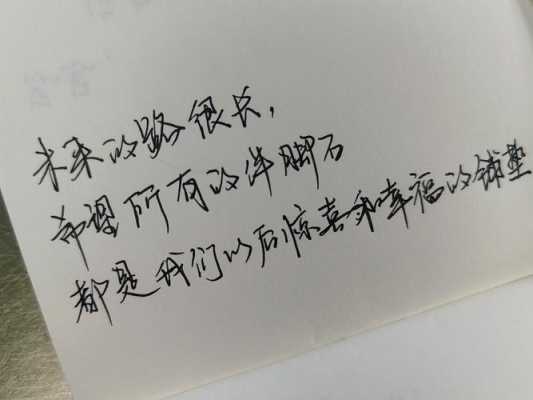 未来的路很长，
希望所有的绊脚石
都是我们以后惊喜和幸福的铺垫